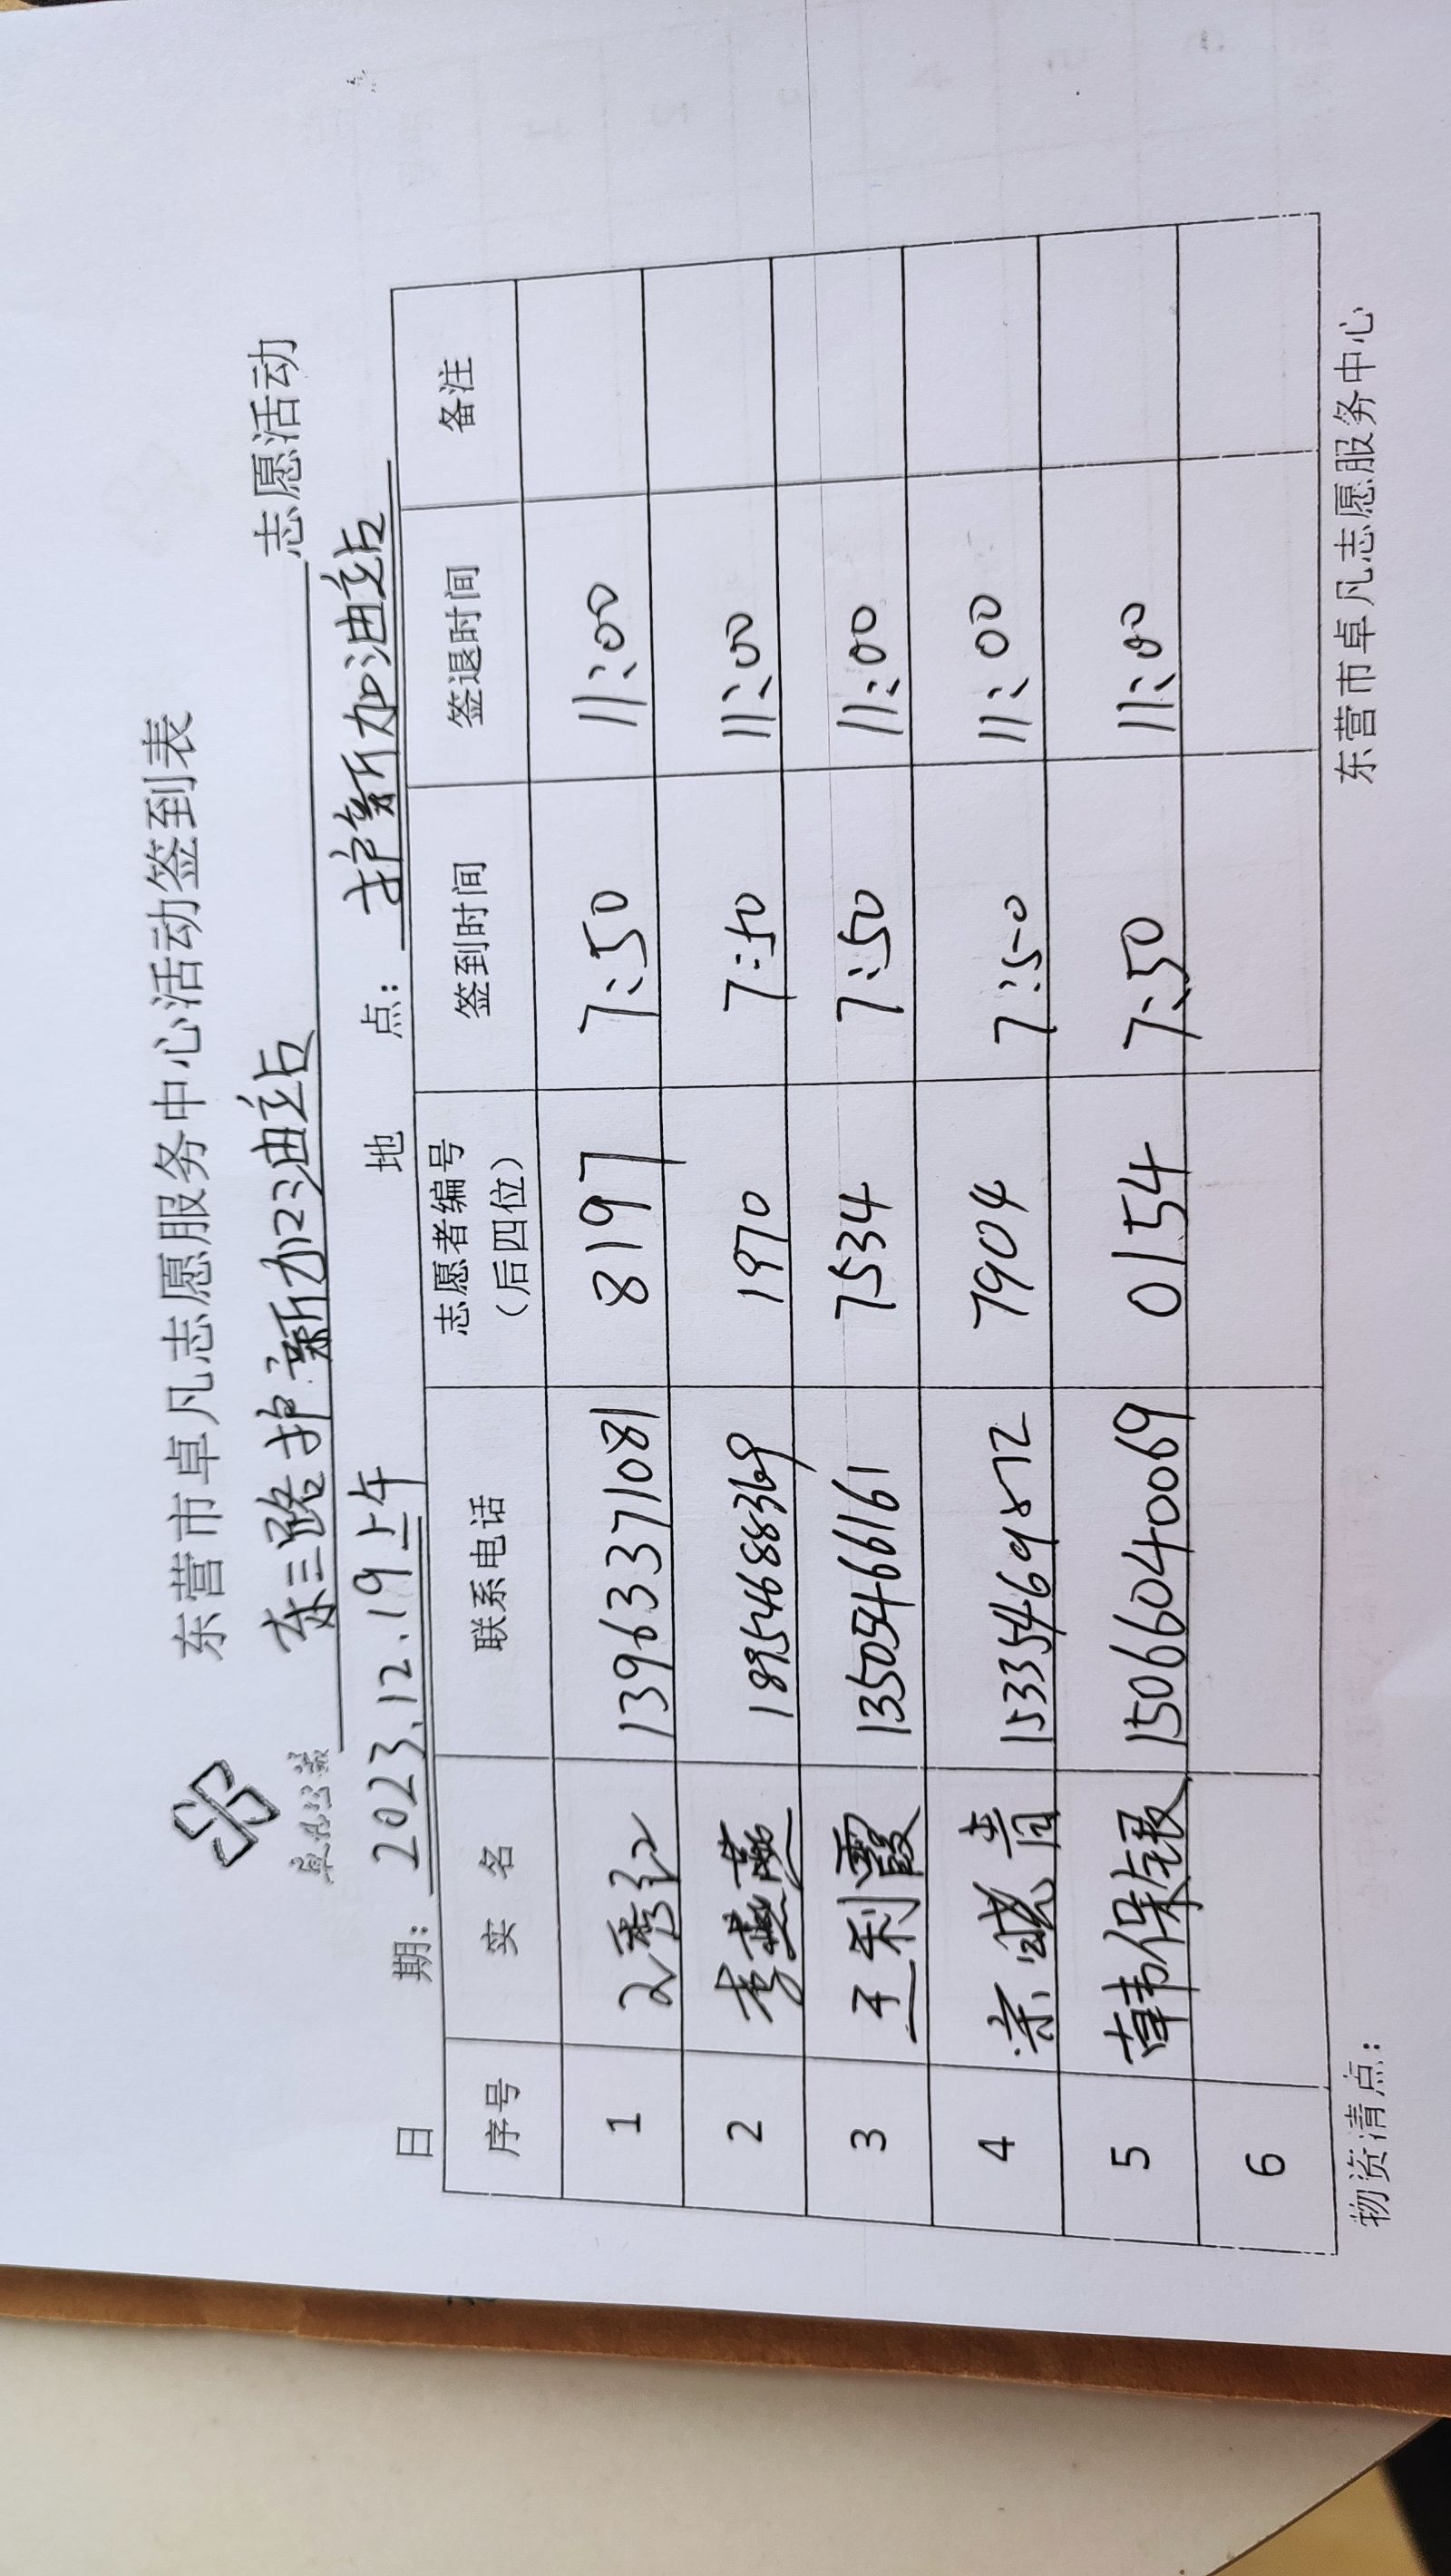 东营市卓凡志愿服务中心活动签到表
卓凡公益
东三路护新加油站 志愿活动
日 期：2023.12.19上午 地 点：护新加油站
序号 实 名 联系电话 志愿者编号（后四位） 签到时间 签退时间 备注
1 文秀红 13963371081 8197 7:50 11:00
2 李燕燕 18954688369 1970 7:50 11:00
3 王利霞 13505466161 7534 7:50 11:00
4 15335469572 7904 7:50 11:00
5 韩保展 15066040069 0154 7:50 11:00
6
物资清点： 东营市卓凡志愿服务中心